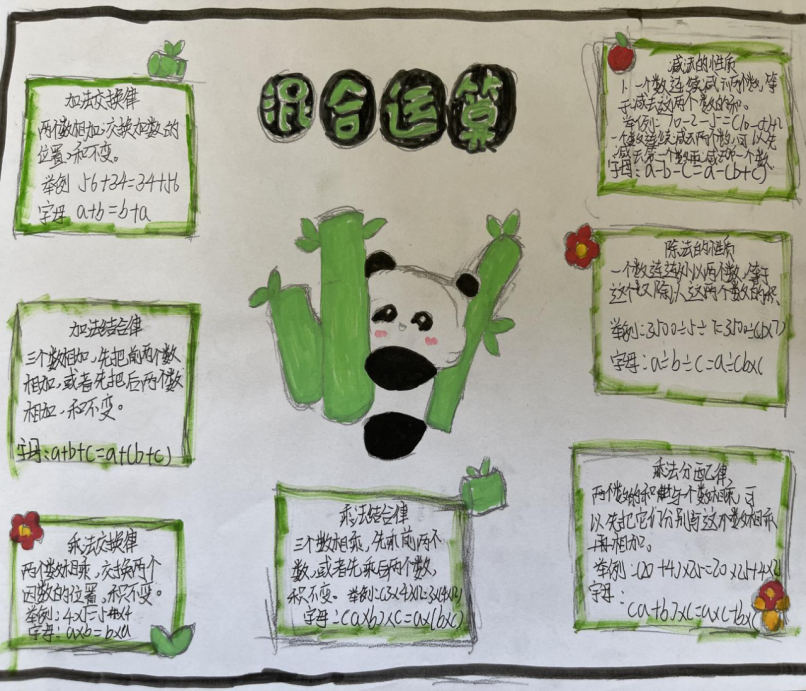 混合运算
加法交换律
两个数相加,交换加数的
位置,和不变。
举例 56+34=34+56
字母 a+b=b+a
加法结合律
三个数相加,先把前两个数
相加,或者先把后两个数
相加,和不变。
字母:a+b+c=a+(b+c)
乘法交换律
两个数相乘,交换两个
因数的位置,积不变。
举例:4×5=5×4
字母:a×b=b×a
乘法结合律
三个数相乘,先乘前两个
数,或者先乘后两个数,
积不变。举例:(3×4)×2=3×(4×2)
字母:(a×b)×c=a×(b×c)
减法的性质
一个数连续减去两个数,等
于减去这两个数的和。
举例:10-2-5=(10-
一个数连续减去两个数,可以先
减去第二个数再减去第一个数
字母:a-b-c=a-(b+c)
除法的性质
一个数连续除以两个数,等于
这个数除以这两个数的积
举例:350÷5÷7=350÷(5×7)
字母:a÷b÷c=a÷(b×c
乘法分配律
两个数的和与一个数相乘,可
以先把它们分别与这个数相乘
再相加。
举例:(20+4)×25=20×25+4×2
字母:
(a+b)×c=a×c+b×c